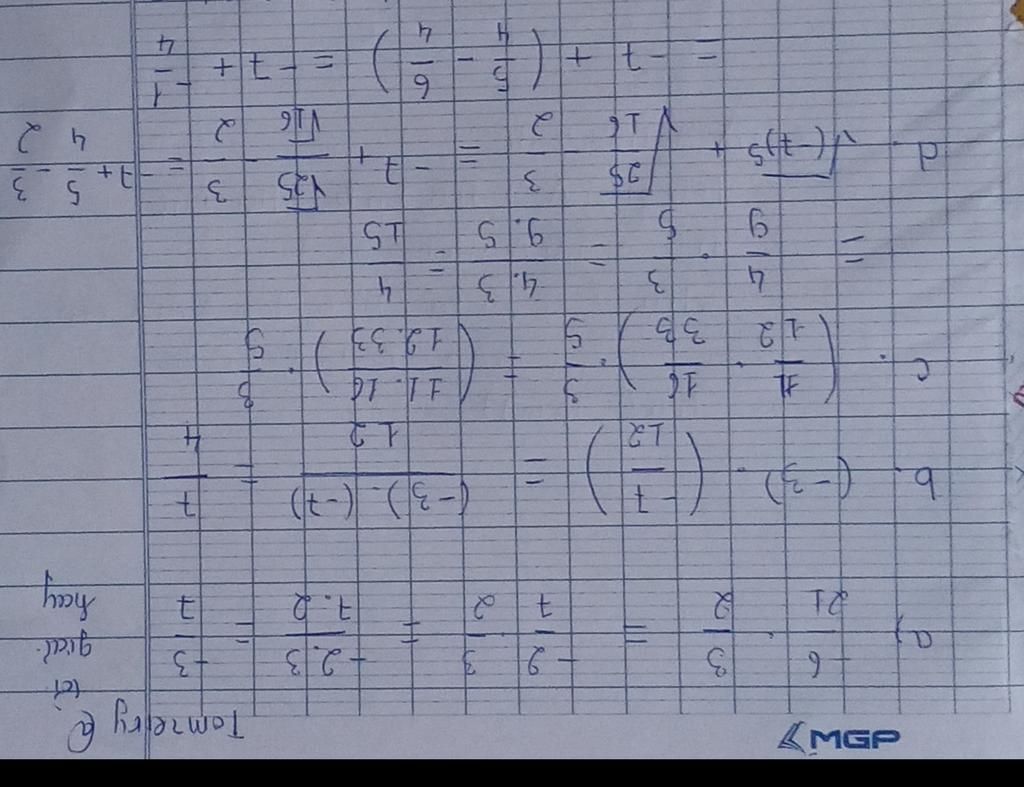 MGP
Tomzetry @
a) -6/21 . 3/2 = -2/7 . 3/2 = -2.3/7.2 = -3/7
hay
b. (-3) . (-7/12) = (-3).(-7)/12 = 7/4
c. (11/12 . 16/33) . 3/5 = (11.16/12.33) . 3/5
= 4/9 . 3/5 = 4.3/9.5 = 4/15
d. + √25/16 - 3/2 = -7 + √25/√16 - 3/2 = -7 + 5/4 - 3/2
= -7 + (5/4 - 6/4) = -7 + -1/4